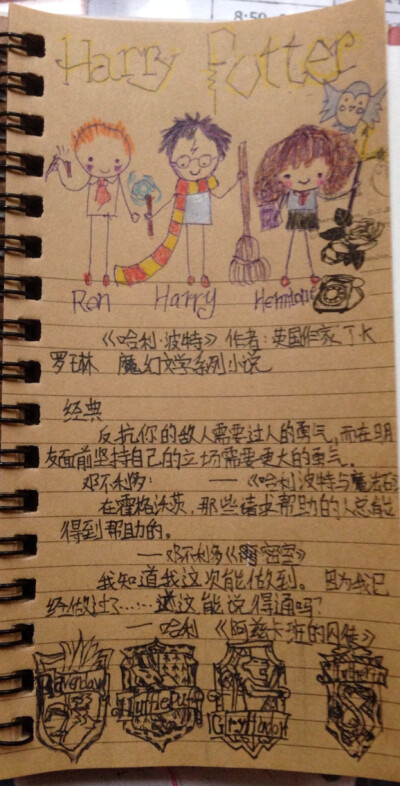 8:50
Harry Potter
Ron Harry Hermione
《哈利·波特》 作者:英国作家 J K
罗琳 魔幻文学系列小说
经典
反抗你的敌人需要过人的勇气,而在朋
友面前坚持自己的立场需要更大的勇气。
邓不利多: ——《哈利波特与魔法石
在霍格沃茨,那些请求帮助的人总能
得到帮助的。
——邓不利多《密室》
我知道我这次能做到。因为我已
经做过了……这能说得通吗?
——哈利 《阿兹卡班的囚徒》
Ravenclaw Hufflepuff Gryffindor